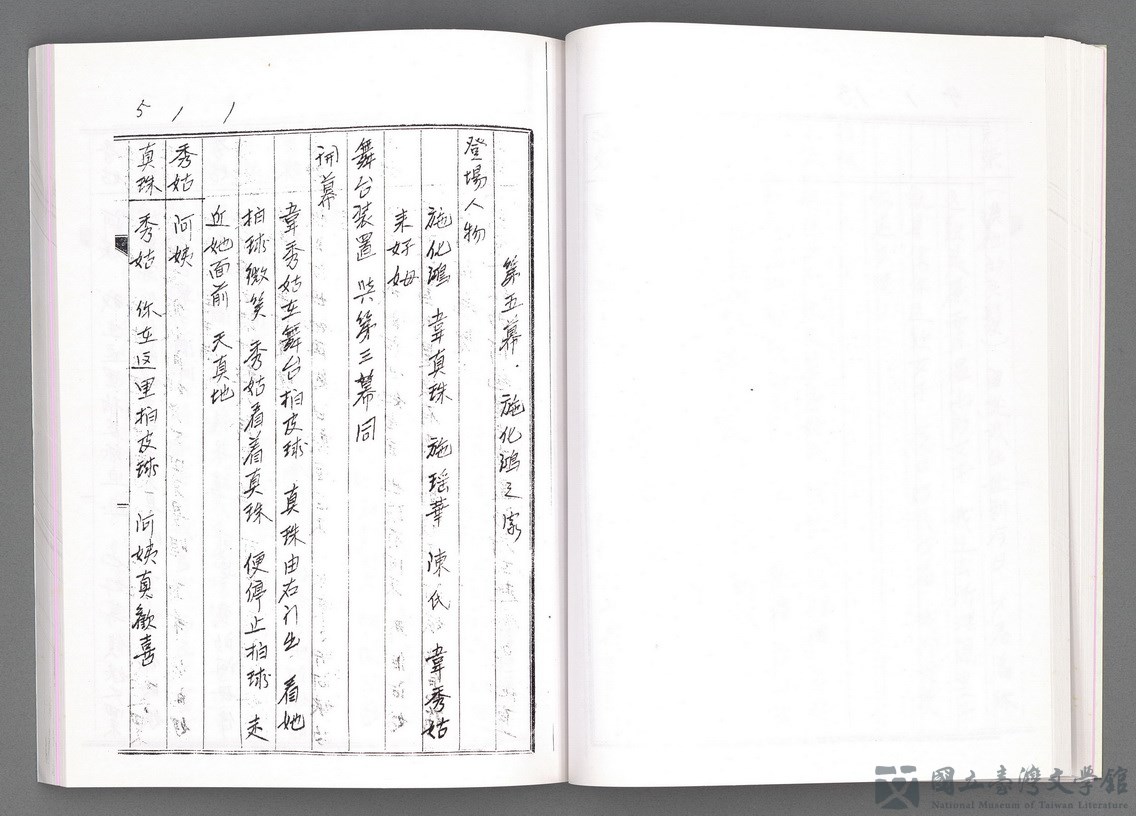 5 1 1
第五幕．施化鴻之家
登場人物
施化鴻 韋真珠 施瑶華 陳氏 韋秀姑
来好姆
舞台装置 與第三幕同
開幕
韋秀姑在舞台拍皮球 真珠由右行出 看她
拍球微笑 秀姑看着真珠 便停止拍球 走
近她面前 天真地
秀姑 阿姨
真珠 秀姑 你在这里拍皮球 阿姨真歡喜
國立臺灣文學館
National Museum of Taiwan Literature